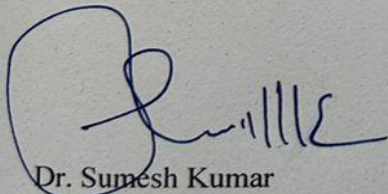 Dr. Sumesh Kumar